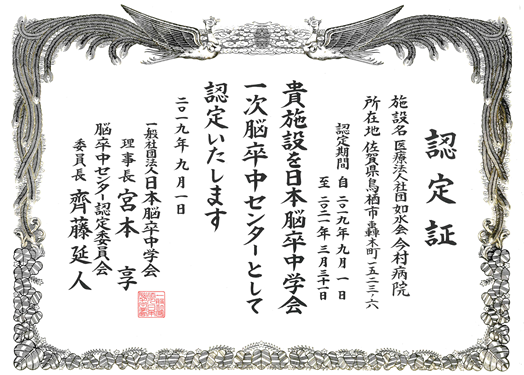 認定証
施設名 医療法人社団如水会 今村病院
所在地 佐賀県鳥栖市轟木町一五二三-六
認定期間 自 二〇一九年 九月 一日
至 二〇二一年 三月三十一日
貴施設を日本脳卒中学会
一次脳卒中センターとして
認定いたします
二〇一九年 九月 一日
一般社団法人 日本脳卒中学会
理事長 宮本 享
脳卒中センター認定委員会
委員長 齊藤 延人